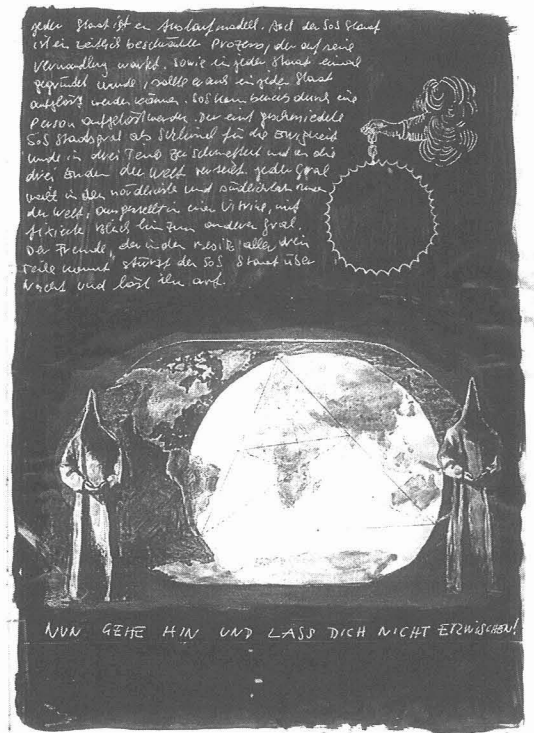 jeder Staat ist ein Auslaufmodell. Auch der SoS Staat
ist ein zeitlich beschränkter Prozess, der auf seine
Verwandlung wartet. Sowie ein jeder Staat einmal
gegründet wurde, sollte er auch ein jeder Staat
aufgelöst werden können. SoS kann bereits durch eine
Person aufgelöst werden. Der einst geschmiedete
SoS Staatsgral als Schlüssel für die
wurde in drei Teile zerschmettert und an die
drei Enden der Welt versenkt. jeder Gral
in den nördlichste und südlichsten
der Welt, ausgestellt in einer Vitrine, mit
Blick hin zum anderen Gral.
Der Fremde, der in den Besitz aller drei
Teile kommt stürzt der SoS Staat über
Nacht und löst ihn auf.
NUN GEHE HIN UND LASS DICH NICHT ERWISCHEN!